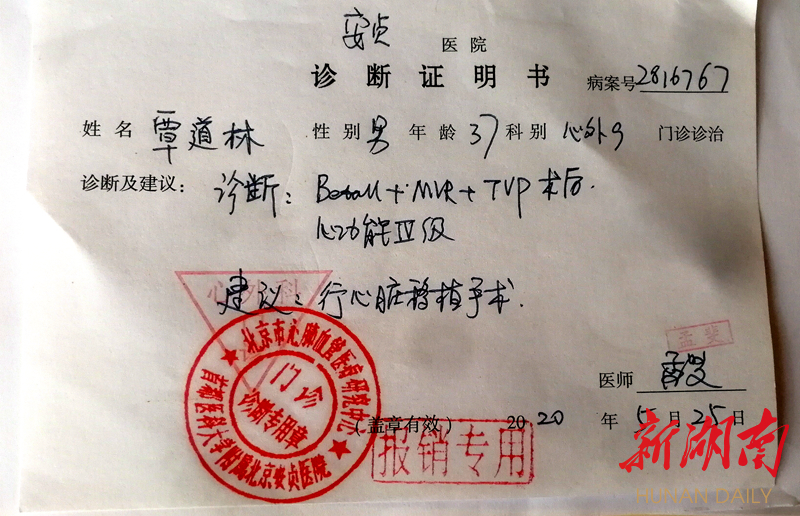 安贞 医院
诊断证明书
病案号 2816767
姓名 覃道林 性别 男 年龄 37 科别 心外 门诊诊治
诊断及建议: 诊断: Bentall + MVR + TVP 术后.
心功能Ⅳ级
建议: 行心脏移植手术.
心外科
北京市心肺血管医疗研究中心
首都医科大学附属北京安贞医院
门诊
诊断专用章
孟斐
医师
(盖章有效) 2020 年 5 月 25 日
报销专用
新湖南
HUNAN DAILY